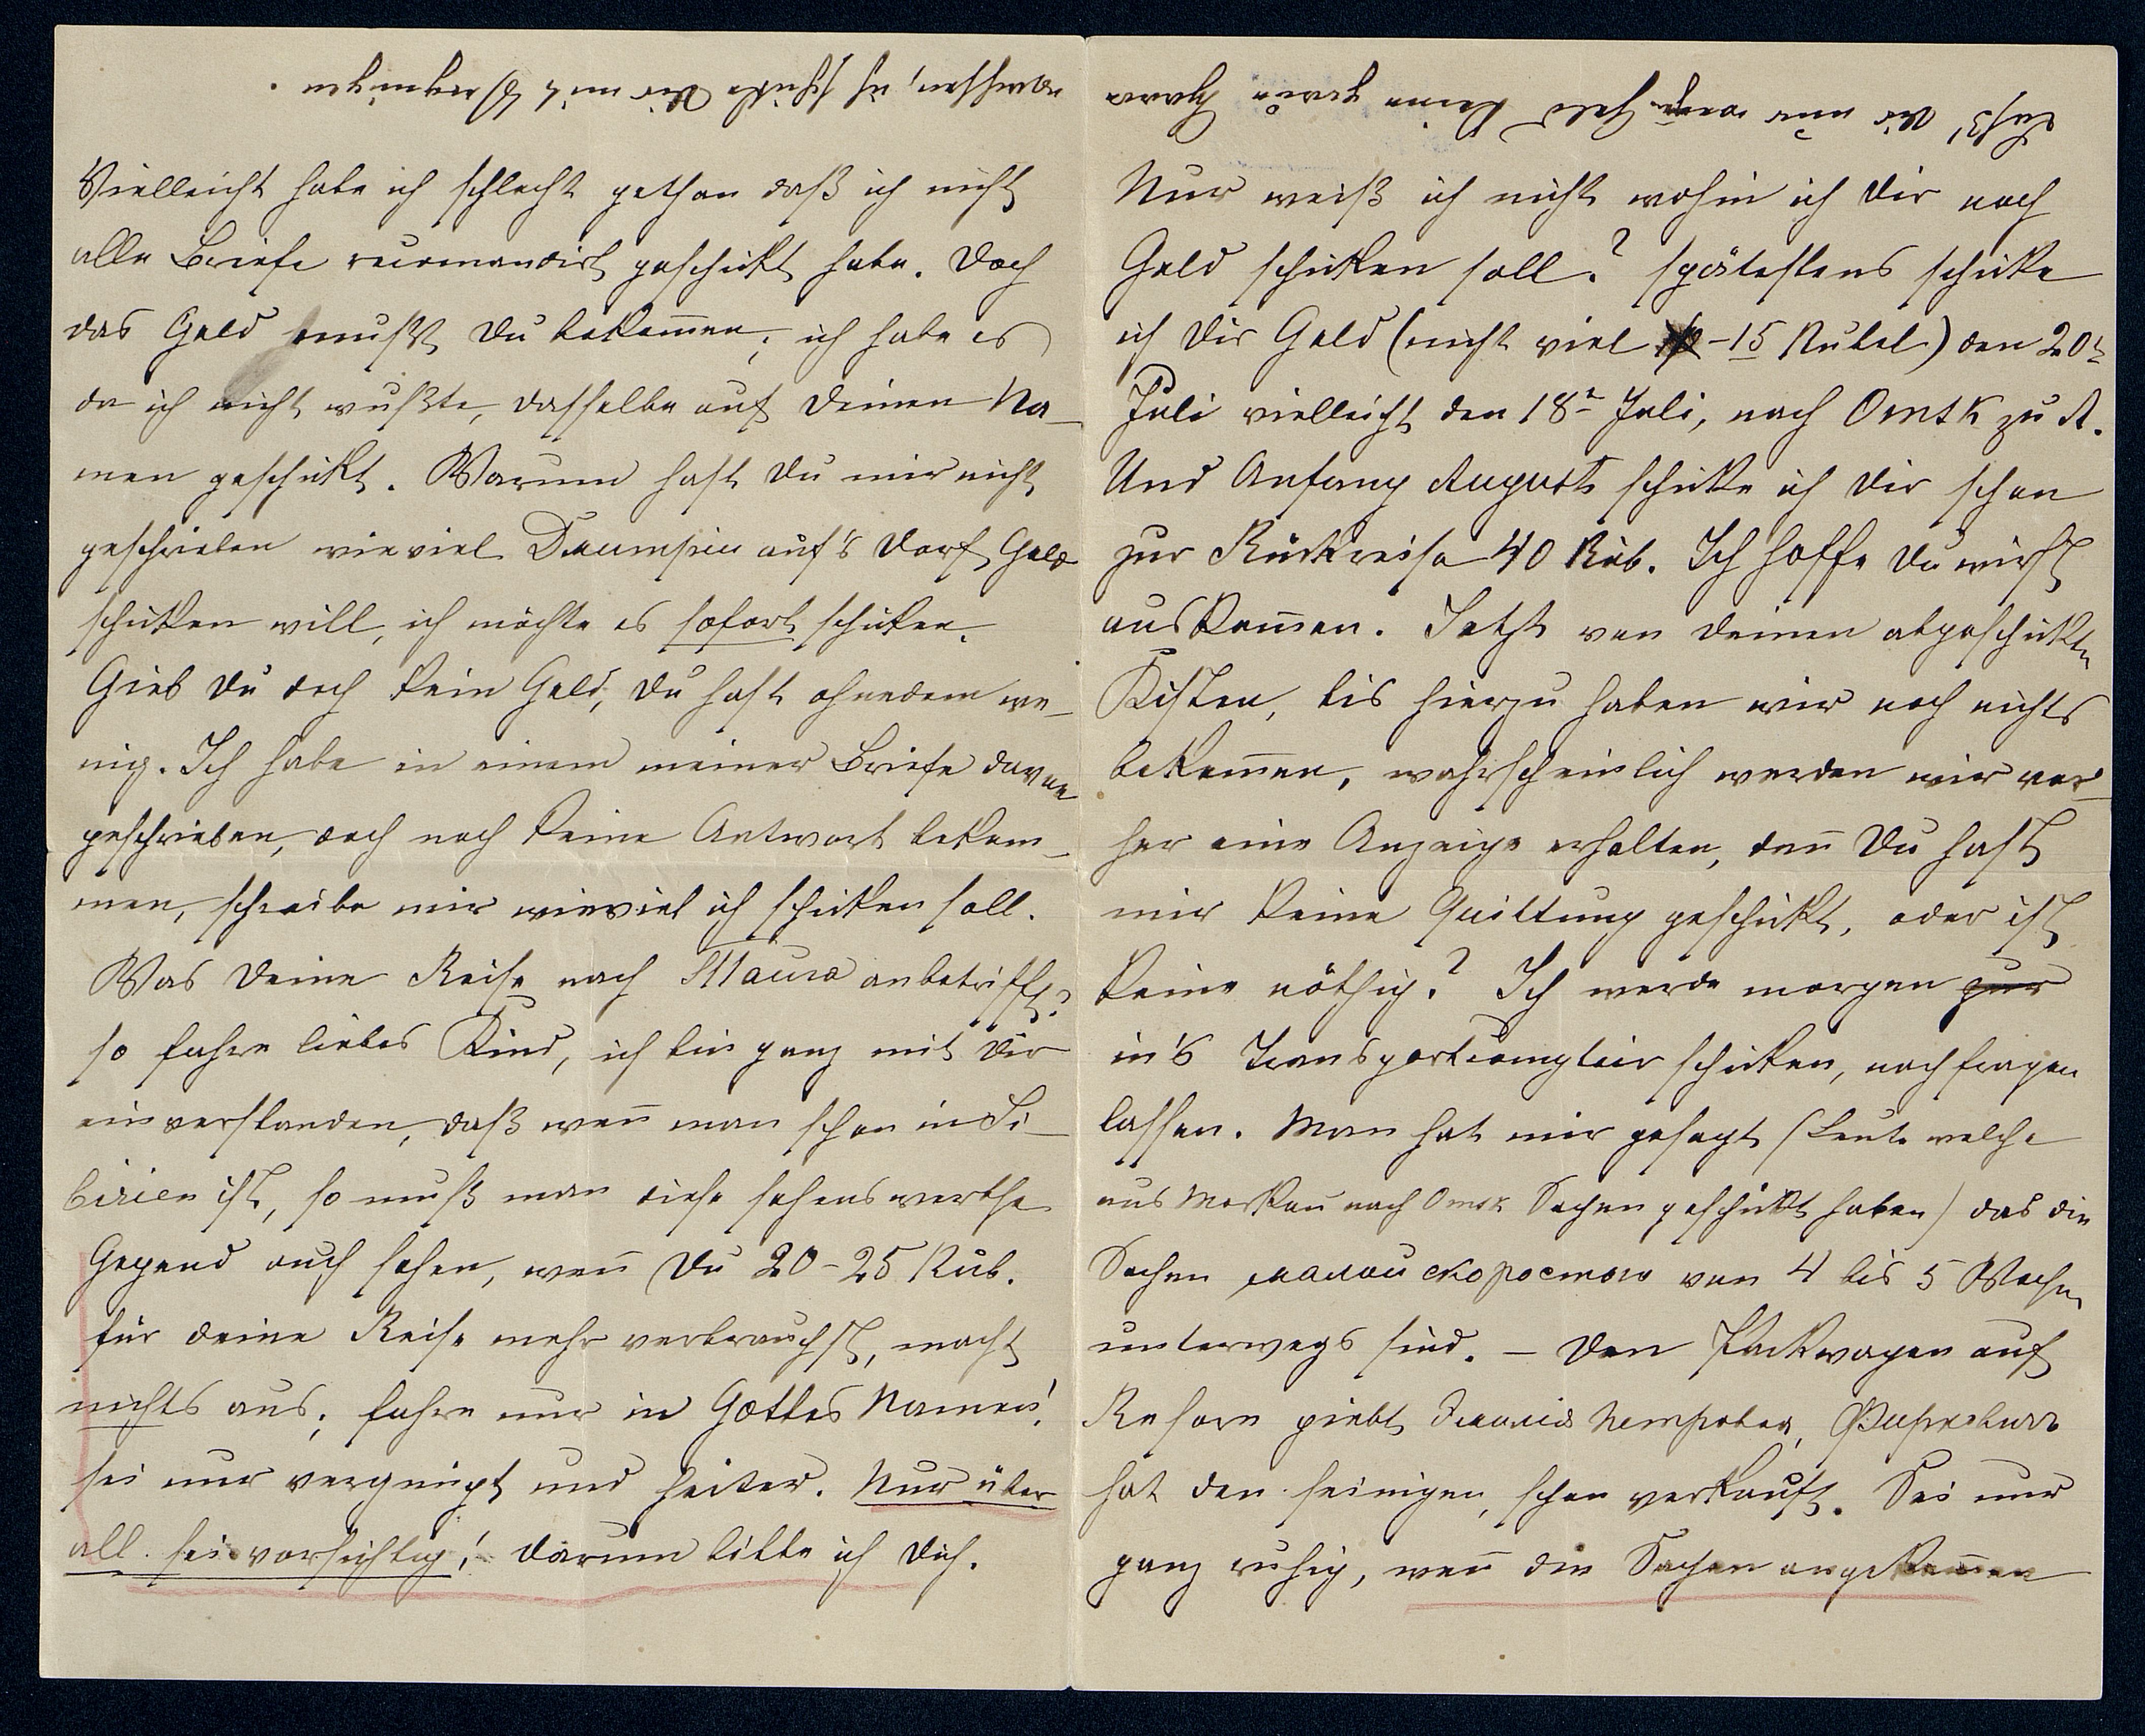 Vielleicht habe ich schlecht gethan daß ich nicht
alle Briefe recomandirt geschickt habe. Doch
das Geld mußt Du bekom̅en, ich habe es
da ich nicht wußte, dasselbe auf Deinen Na-
men geschickt. Warum hast Du mir nicht
geschrieben wieviel auf's Dorf Geld
schicken will, ich möchte es sofort schicken.
Gieb Du doch kein Geld, Du hast ohnedem we-
nig. Ich habe in einem meiner Briefe davon
geschrieben, doch noch keine Antwort bekom-
men, schreibe mir wieviel ich schicken soll.
Was Deine Reise nach anbetrifft?
so fahre liebes Kind, ich bin ganz mit Dir
einverstanden, daß wen̅ man schon in Si-
birien ist, so muß man diese sehenswerthe
Gegend auch sehen, wen̅ Du 20-25 Rub.
für Deine Reise mehr verbrauchst, macht
nichts aus, fahre nur in Gottes Namen!
sei nur vergnügt und heiter. Nur über
all sei vorsichtig! darum bitte ich Dich.
wachsen, ich schicke Dir mit Vergnügen.
Nur weiß ich nicht wohin ich Dir noch
Geld schicken soll? spätestens schicke
ich Dir Geld (nicht viel -15 Rubel) den 20t
Juli vielleicht den 18t Juli, nach Omsk zu A.
Und Anfang August schicke ich Dir schon
zur Rückreise 40 Rub. Ich hoffe Du wirst
auskom̅en. Jetzt von Deinen abgeschickten
Kisten, bis hierzu haben wir noch nichts
bekom̅en, wahrscheinlich werden wir vor-
her eine Anzeige erhalten, den̅ Du hast
mir keine Quittung geschickt, oder ist
keine nöthig? Ich werde morgen zur
in's Transportcomptoir schicken, nachfragen
lassen. Man hat mir gesagt (Leute welche
aus Moskau nach Omsk Sachen geschickt haben) das die
Sachen малой скоростью von 4 bis 5 Wochen
unterwegs sind. – Den Packwagen auf
giebt Петровна,
hat den seinigen, schon verkauft. Sei nur
ganz ruhig, wen̅ die Sachen angekom̅en
Laß' Dir nur Geld keine graue Haare